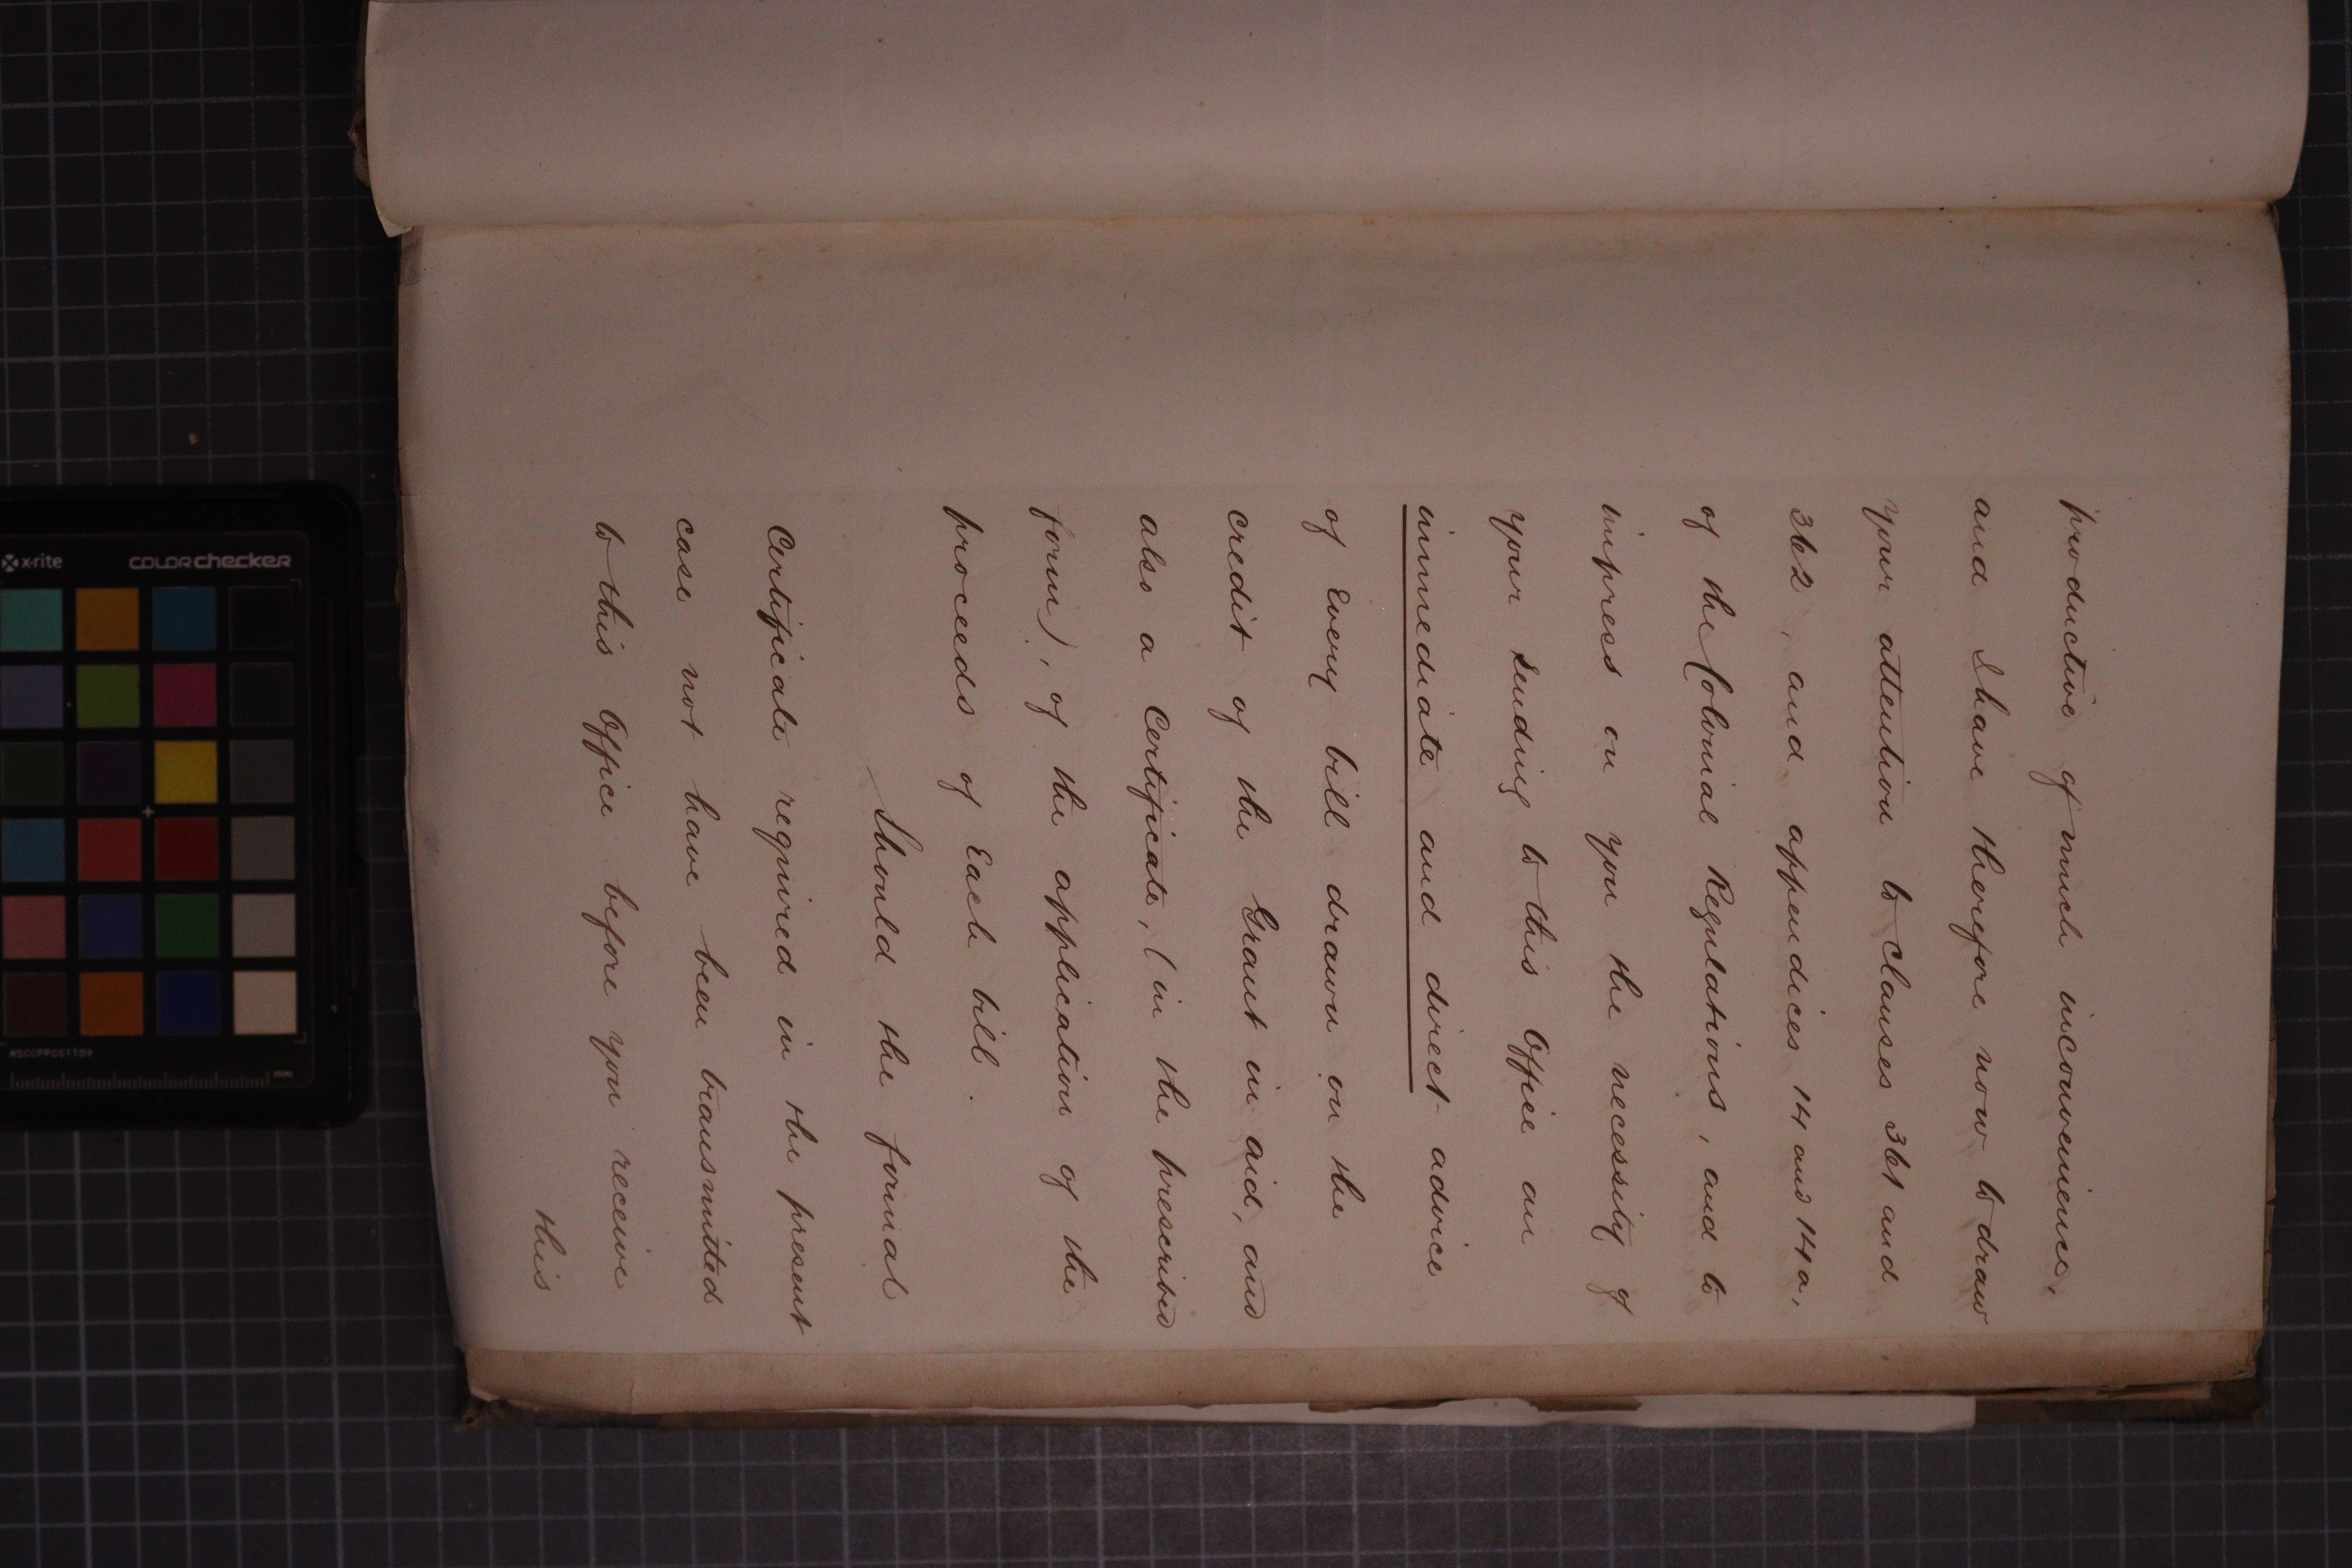 productive of much inconvenience,
and I have therefore now to draw
your attention to Clauses 361 and
362, and appendices 14 and 14a,
of the Colonial Regulations, and to
impress on you the necessity of
your sending to this Office an
immediate and direct advice
of Every bill drawn on the
credit of the Grant in aid, and
also a Certificate, (in the prescribed
form), of the application of the
proceeds of Each bill.
Should the formal
Certificate required in the present
case not have been transmitted
to this Office before you receive
this
x-rite
colorchecker
MSCCPPCC1109
mm